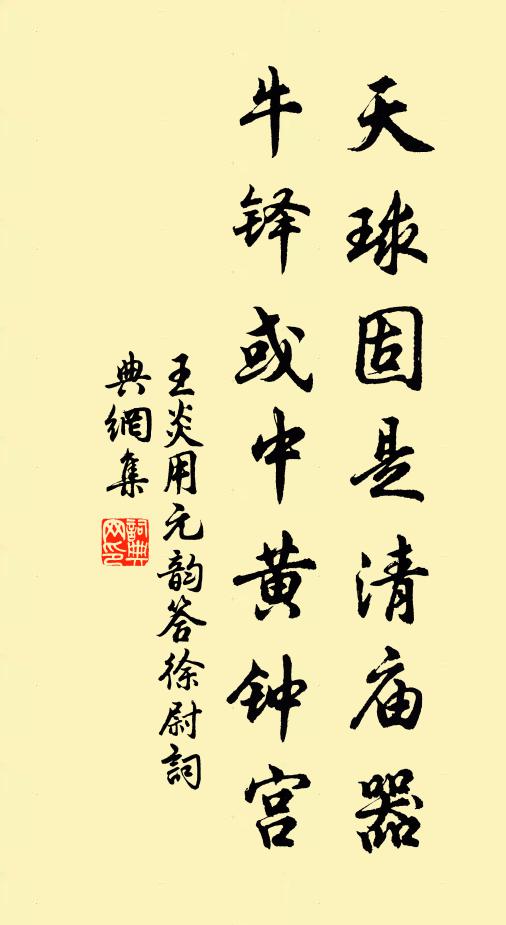 天球固是清庙器
牛铎或中黄钟宫
王炎用元韵答徐尉詞
典網集
詞典網印